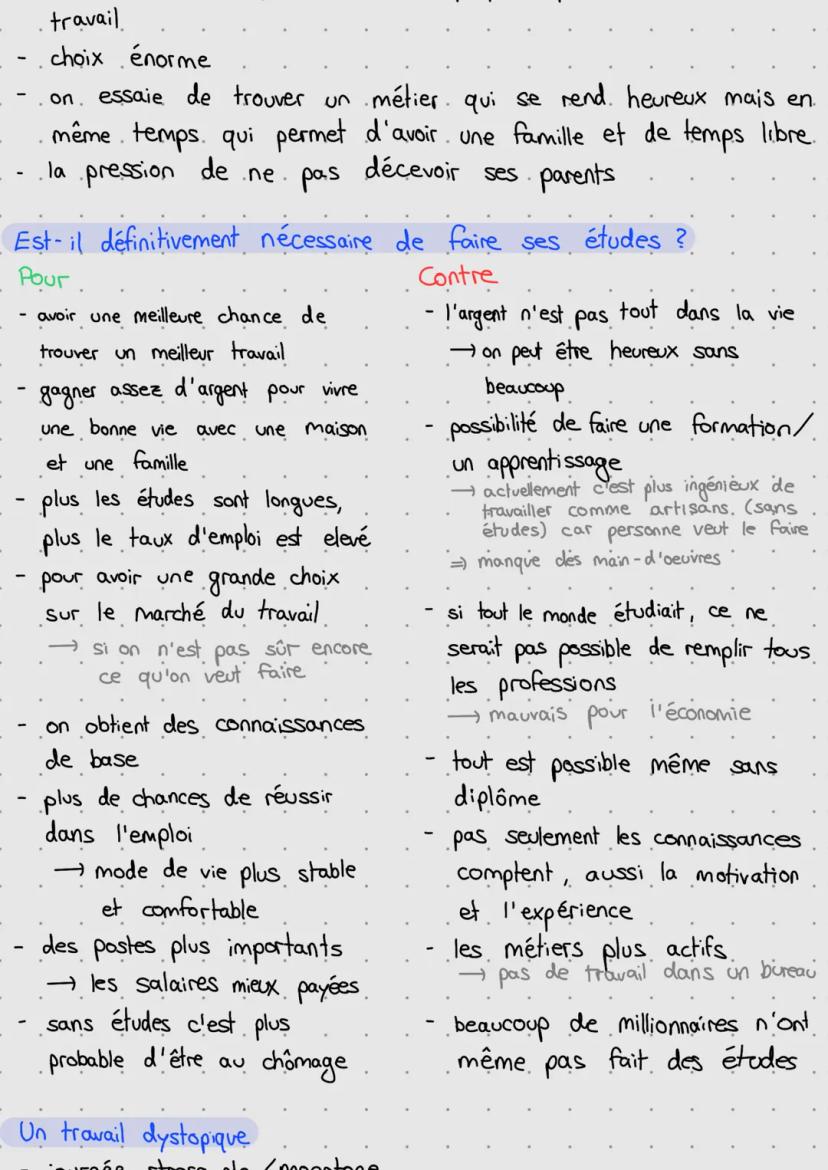 travail
- choix énorme
- on essaie de trouver un métier qui se rend heureux mais en
même temps qui permet d'avoir une famille et de temps libre
- la pression de ne pas décevoir ses parents
Est-il définitivement nécessaire de faire ses études ?
Pour
- avoir une meilleure chance de
trouver un meilleur travail
- gagner assez d'argent pour vivre
une bonne vie avec une maison
et une famille
- plus les études sont longues,
plus le taux d'emploi est elevé
- pour avoir une grande choix
sur le marché du travail
→ si on n'est pas sûr encore
ce qu'on veut faire
- on obtient des connaissances
de base
- plus de chances de réussir
dans l'emploi
→ mode de vie plus stable
et comfortable
- des postes plus importants
→ les salaires mieux payées
- sans études c'est plus
probable d'être au chômage
Contre
- l'argent n'est pas tout dans la vie
→ on peut être heureux sans
beaucoup
- possibilité de faire une formation/
un apprentissage
→ actuellement c'est plus ingénieux de
travailler comme artisans. (sans
études) car personne veut le faire
⇒ manque des main-d'oeuvres
- si tout le monde étudiait, ce ne
serait pas possible de remplir tous
les professions
→ mauvais pour l'économie
- tout est possible même sans
diplôme
- pas seulement les connaissances
comptent, aussi la motivation
et l'expérience
- les métiers plus actifs
→ pas de travail dans un bureau
- beaucoup de millionnaires n'ont
même pas fait des études
Un travail dystopique